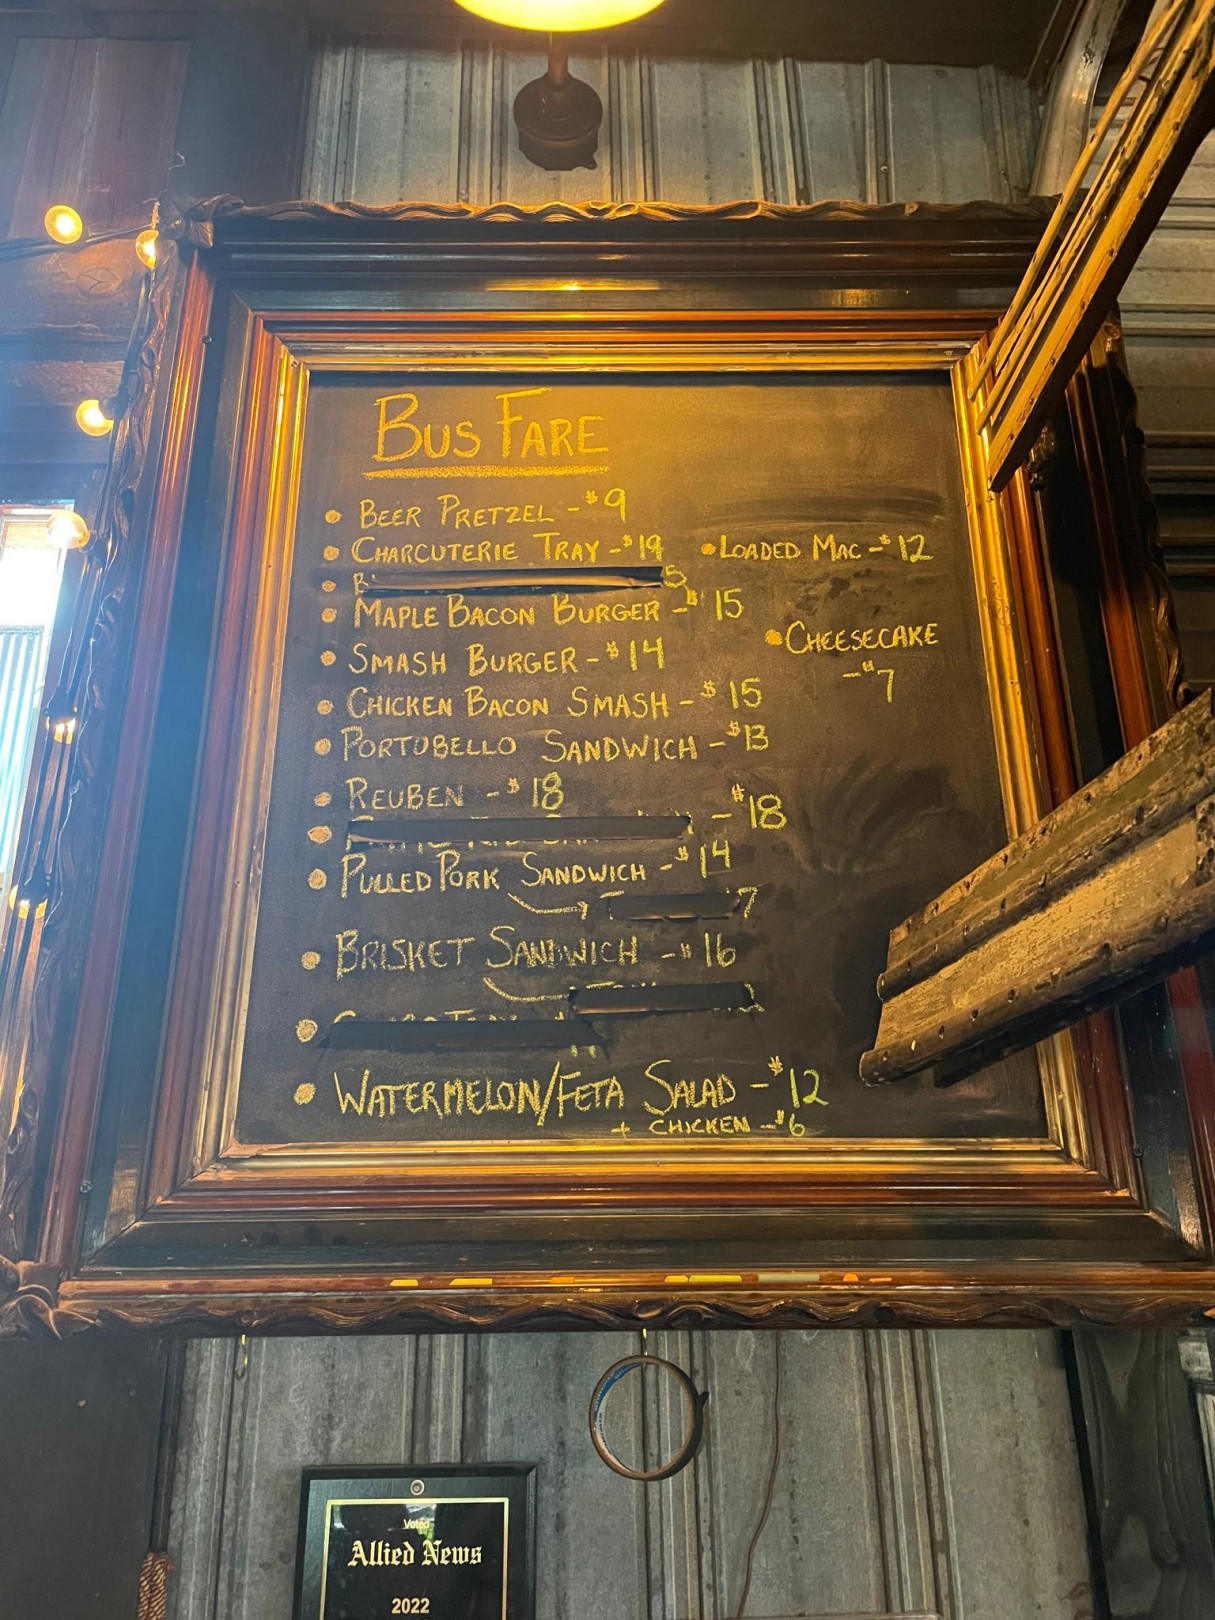 BUS FARE
• BEER PRETZEL - $9
• CHARCUTERIE TRAY - $19
• MAPLE BACON BURGER - $15
• SMASH BURGER - $14
• CHICKEN BACON SMASH - $15
• PORTOBELLO SANDWICH - $13
• REUBEN - $18
• - $18
• PULLED PORK SANDWICH - $14
7
• BRISKET SANDWICH - $16
• WATERMELON/FETA SALAD - $12
+ CHICKEN - $6
• LOADED MAC - $12
• CHEESECAKE
- $7
Voted
Allied News
2022